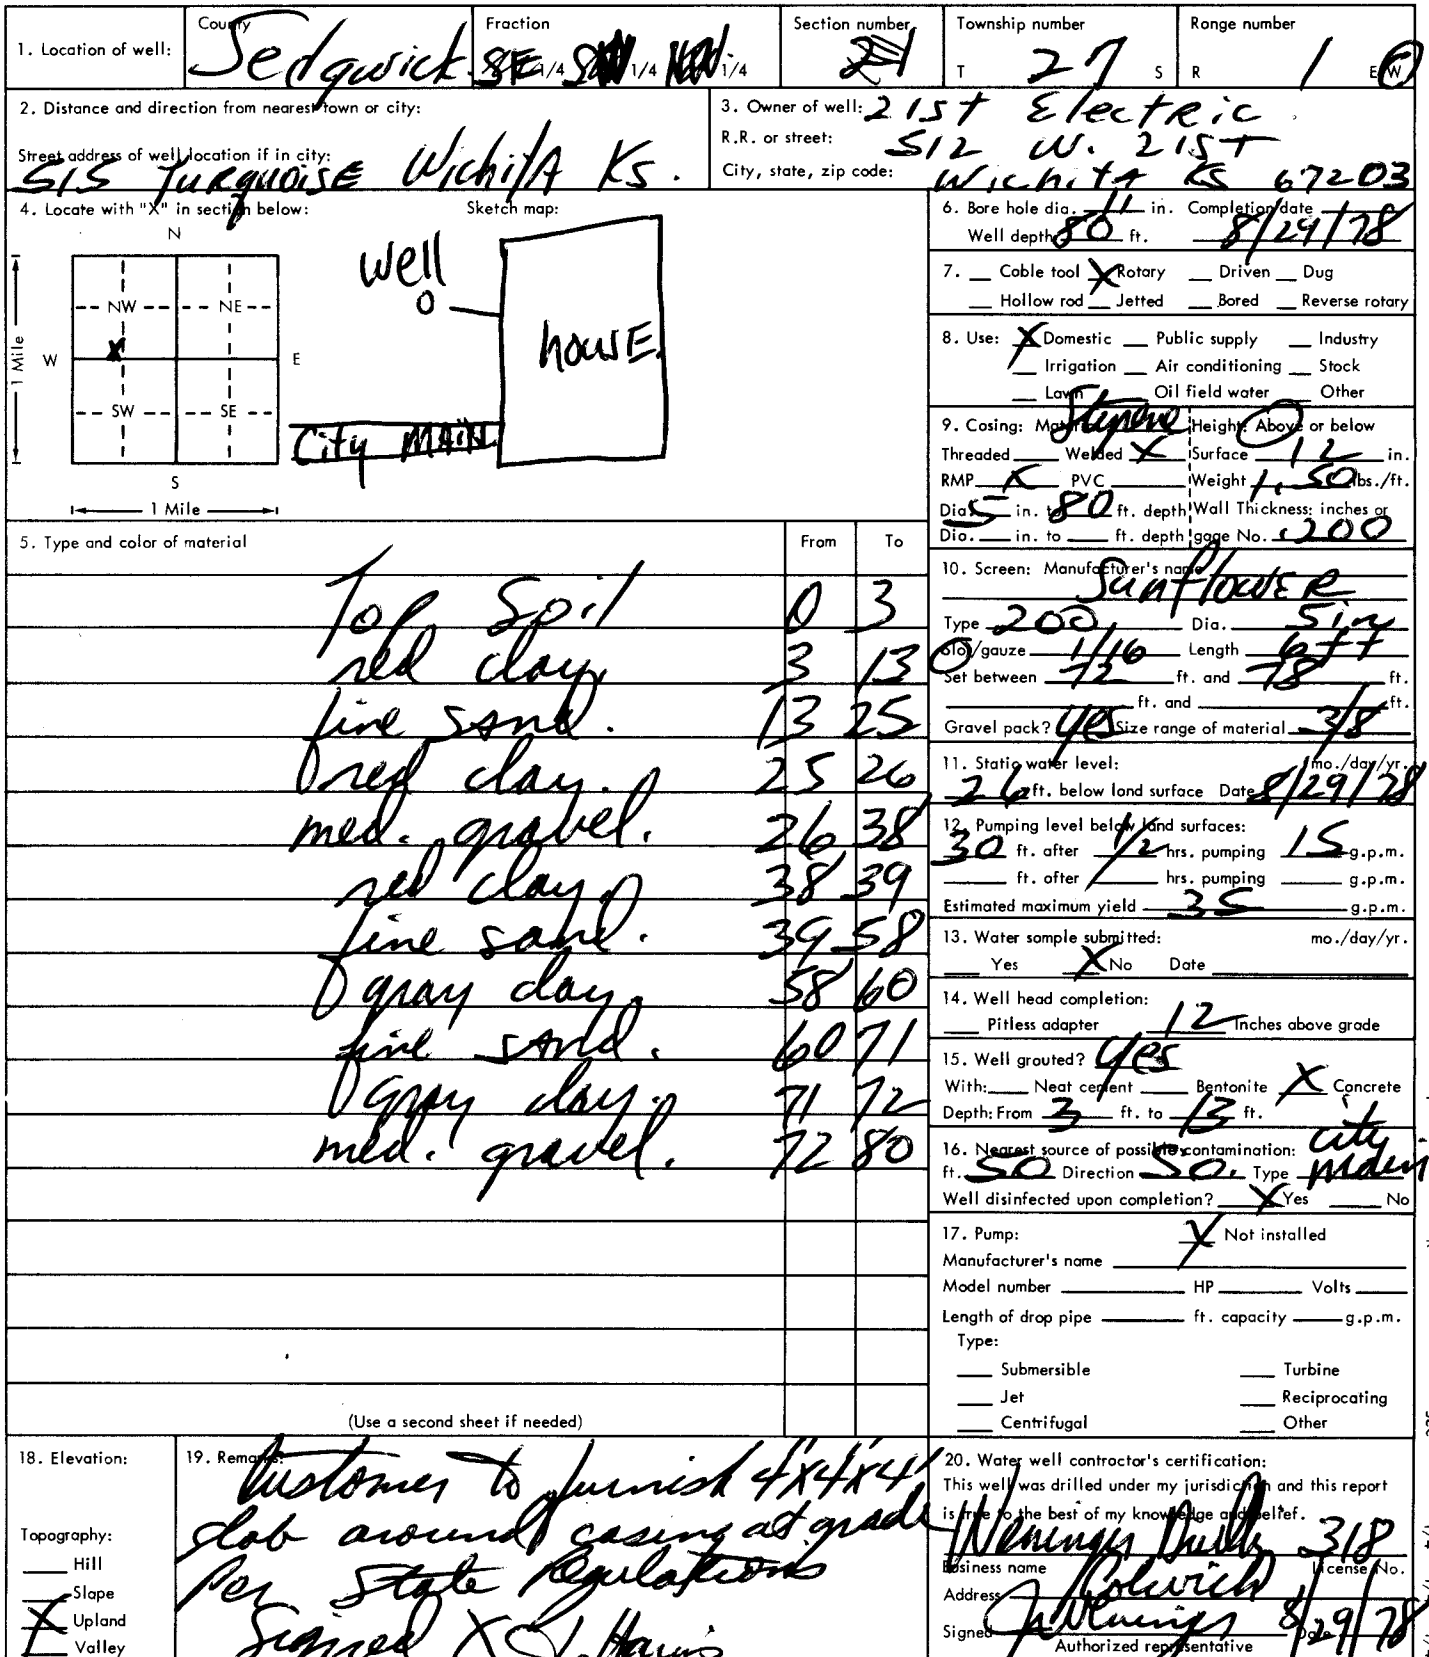 1. Location of well: County Sedgwick Fraction SE 1/4 1/4 1/4 Section number Township number T 27 S Range number R 1 E W
2. Distance and direction from nearest town or city:
Street address of well location if in city:
515 Turquoise Wichita Ks.
3. Owner of well: 21st Electric
R.R. or street: 512 W. 21st
City, state, zip code: Wichita Ks 67203
4. Locate with "X" in section below: Sketch map:
N
NW NE
W X E
SW SE
S
1 Mile
1 Mile
Well
House
City Main
6. Bore hole dia. 11 in. Completion date
Well depth 80 ft. 8/29/78
7. Cable tool X Rotary Driven Dug
Hollow rod Jetted Bored Reverse rotary
8. Use: X Domestic Public supply Industry
Irrigation Air conditioning Stock
Lawn Oil field water Other
9. Casing: Material Styrene Height: Above or below
Threaded Welded X Surface 12 in.
RMP X PVC Weight 1.50 lbs./ft.
Dia. 5 in. to 80 ft. depth Wall Thickness: inches or
Dia. in. to ft. depth gage No. .200
5. Type and color of material From To
Top Soil 0 3
red clay 3 13
fine sand. 13 25
red clay. 25 26
med. gravel. 26 38
red clay. 38 39
fine sand. 39 58
gray clay. 58 60
fine sand. 60 71
gray clay. 71 72
med. gravel. 72 80
(Use a second sheet if needed)
10. Screen: Manufacturer's name
Sunflower
Type 200 Dia. 5in
Slot/gauze 1/16 Length 6ft
Set between 72 ft. and 78 ft.
ft. and ft.
Gravel pack? yes Size range of material 3/8
11. Static water level: mo./day/yr.
26 ft. below land surface Date 8/29/78
12. Pumping level below land surfaces:
30 ft. after 1/2 hrs. pumping 15 g.p.m.
ft. after hrs. pumping g.p.m.
Estimated maximum yield 35 g.p.m.
13. Water sample submitted: mo./day/yr.
Yes X No Date
14. Well head completion:
Pitless adapter 12 Inches above grade
15. Well grouted? yes
With: Neat cement Bentonite X Concrete
Depth: From 3 ft. to 13 ft.
16. Nearest source of possible contamination: city
ft. 50 Direction SO. Type main
Well disinfected upon completion? X Yes No
17. Pump: X Not installed
Manufacturer's name
Model number HP Volts
Length of drop pipe ft. capacity g.p.m.
Type:
Submersible Turbine
Jet Reciprocating
Centrifugal Other
18. Elevation:
Topography:
Hill
Slope
X Upland
Valley
19. Remarks: Customer to furnish 4'x4'x4'
slab around casing at grade
Per State Regulations
Signed X J. Harris
20. Water well contractor's certification:
This well was drilled under my jurisdiction and this report
is true to the best of my knowledge and belief.
Weninger Drlg 318
Business name License No.
Address Colwich
Signed J Weninger Date 8/29/78
Authorized representative